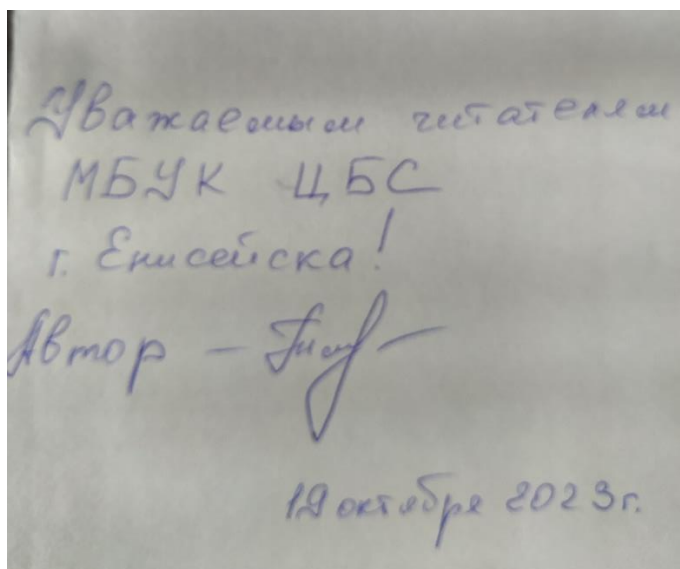 Уважаемым читателям
МБУК ЦБС
г. Енисейска!
Автор –
19 октября 2023г.